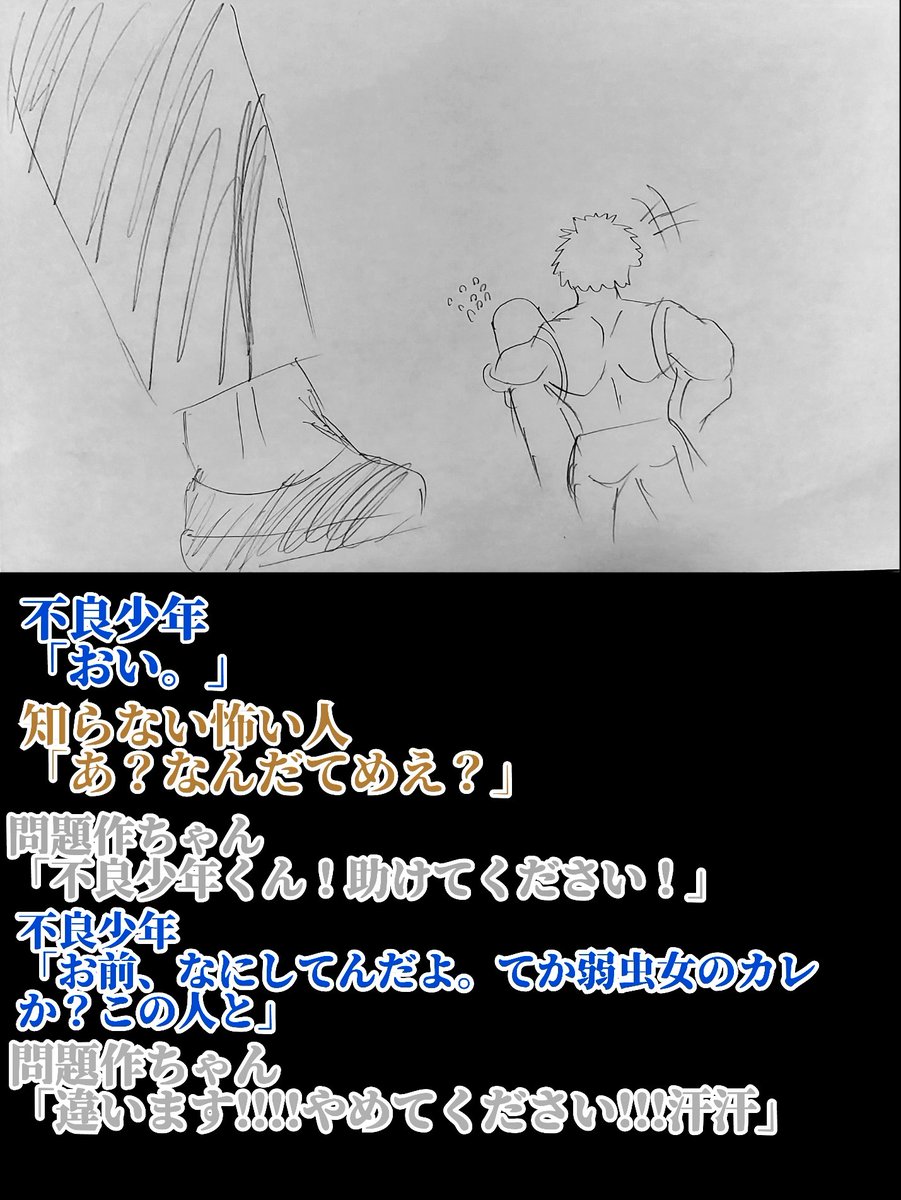 不良少年
「おい。」
知らない怖い人
「あ？なんだてめえ？」
問題作ちゃん
「不良少年くん！助けてください！」
不良少年
「お前、なにしてんだよ。てか弱虫女のカレ
か？この人と」
問題作ちゃん
「違います!!!!やめてください!!!汗汗」